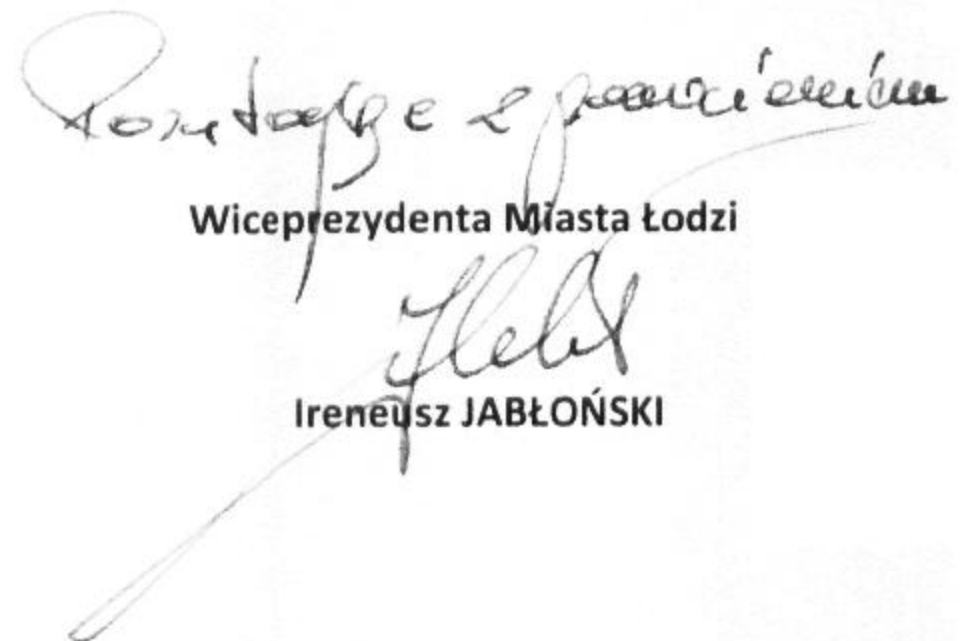 Pozostaję z poważaniem
Wiceprezydenta Miasta Łodzi
Ireneusz JABŁOŃSKI